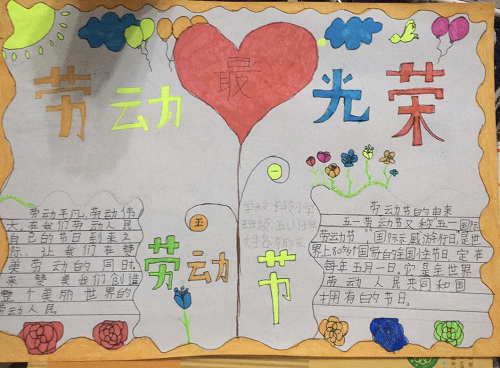 劳动最光荣
一
五
劳动节
劳动平凡,劳动伟
大,在我们劳动人民
自己的节日到来之
际,让我们在赞
美劳动的同时,
来赞美我们创造
整个美丽世界的
劳动人民。
劳动节的由来
五一劳动节又称"五一国际
劳动节""国际示威游行日,是世
界上80%个国家的全国性节日,定在
每年五月一日,它是全世界
劳动人民共同
拥有的节日。